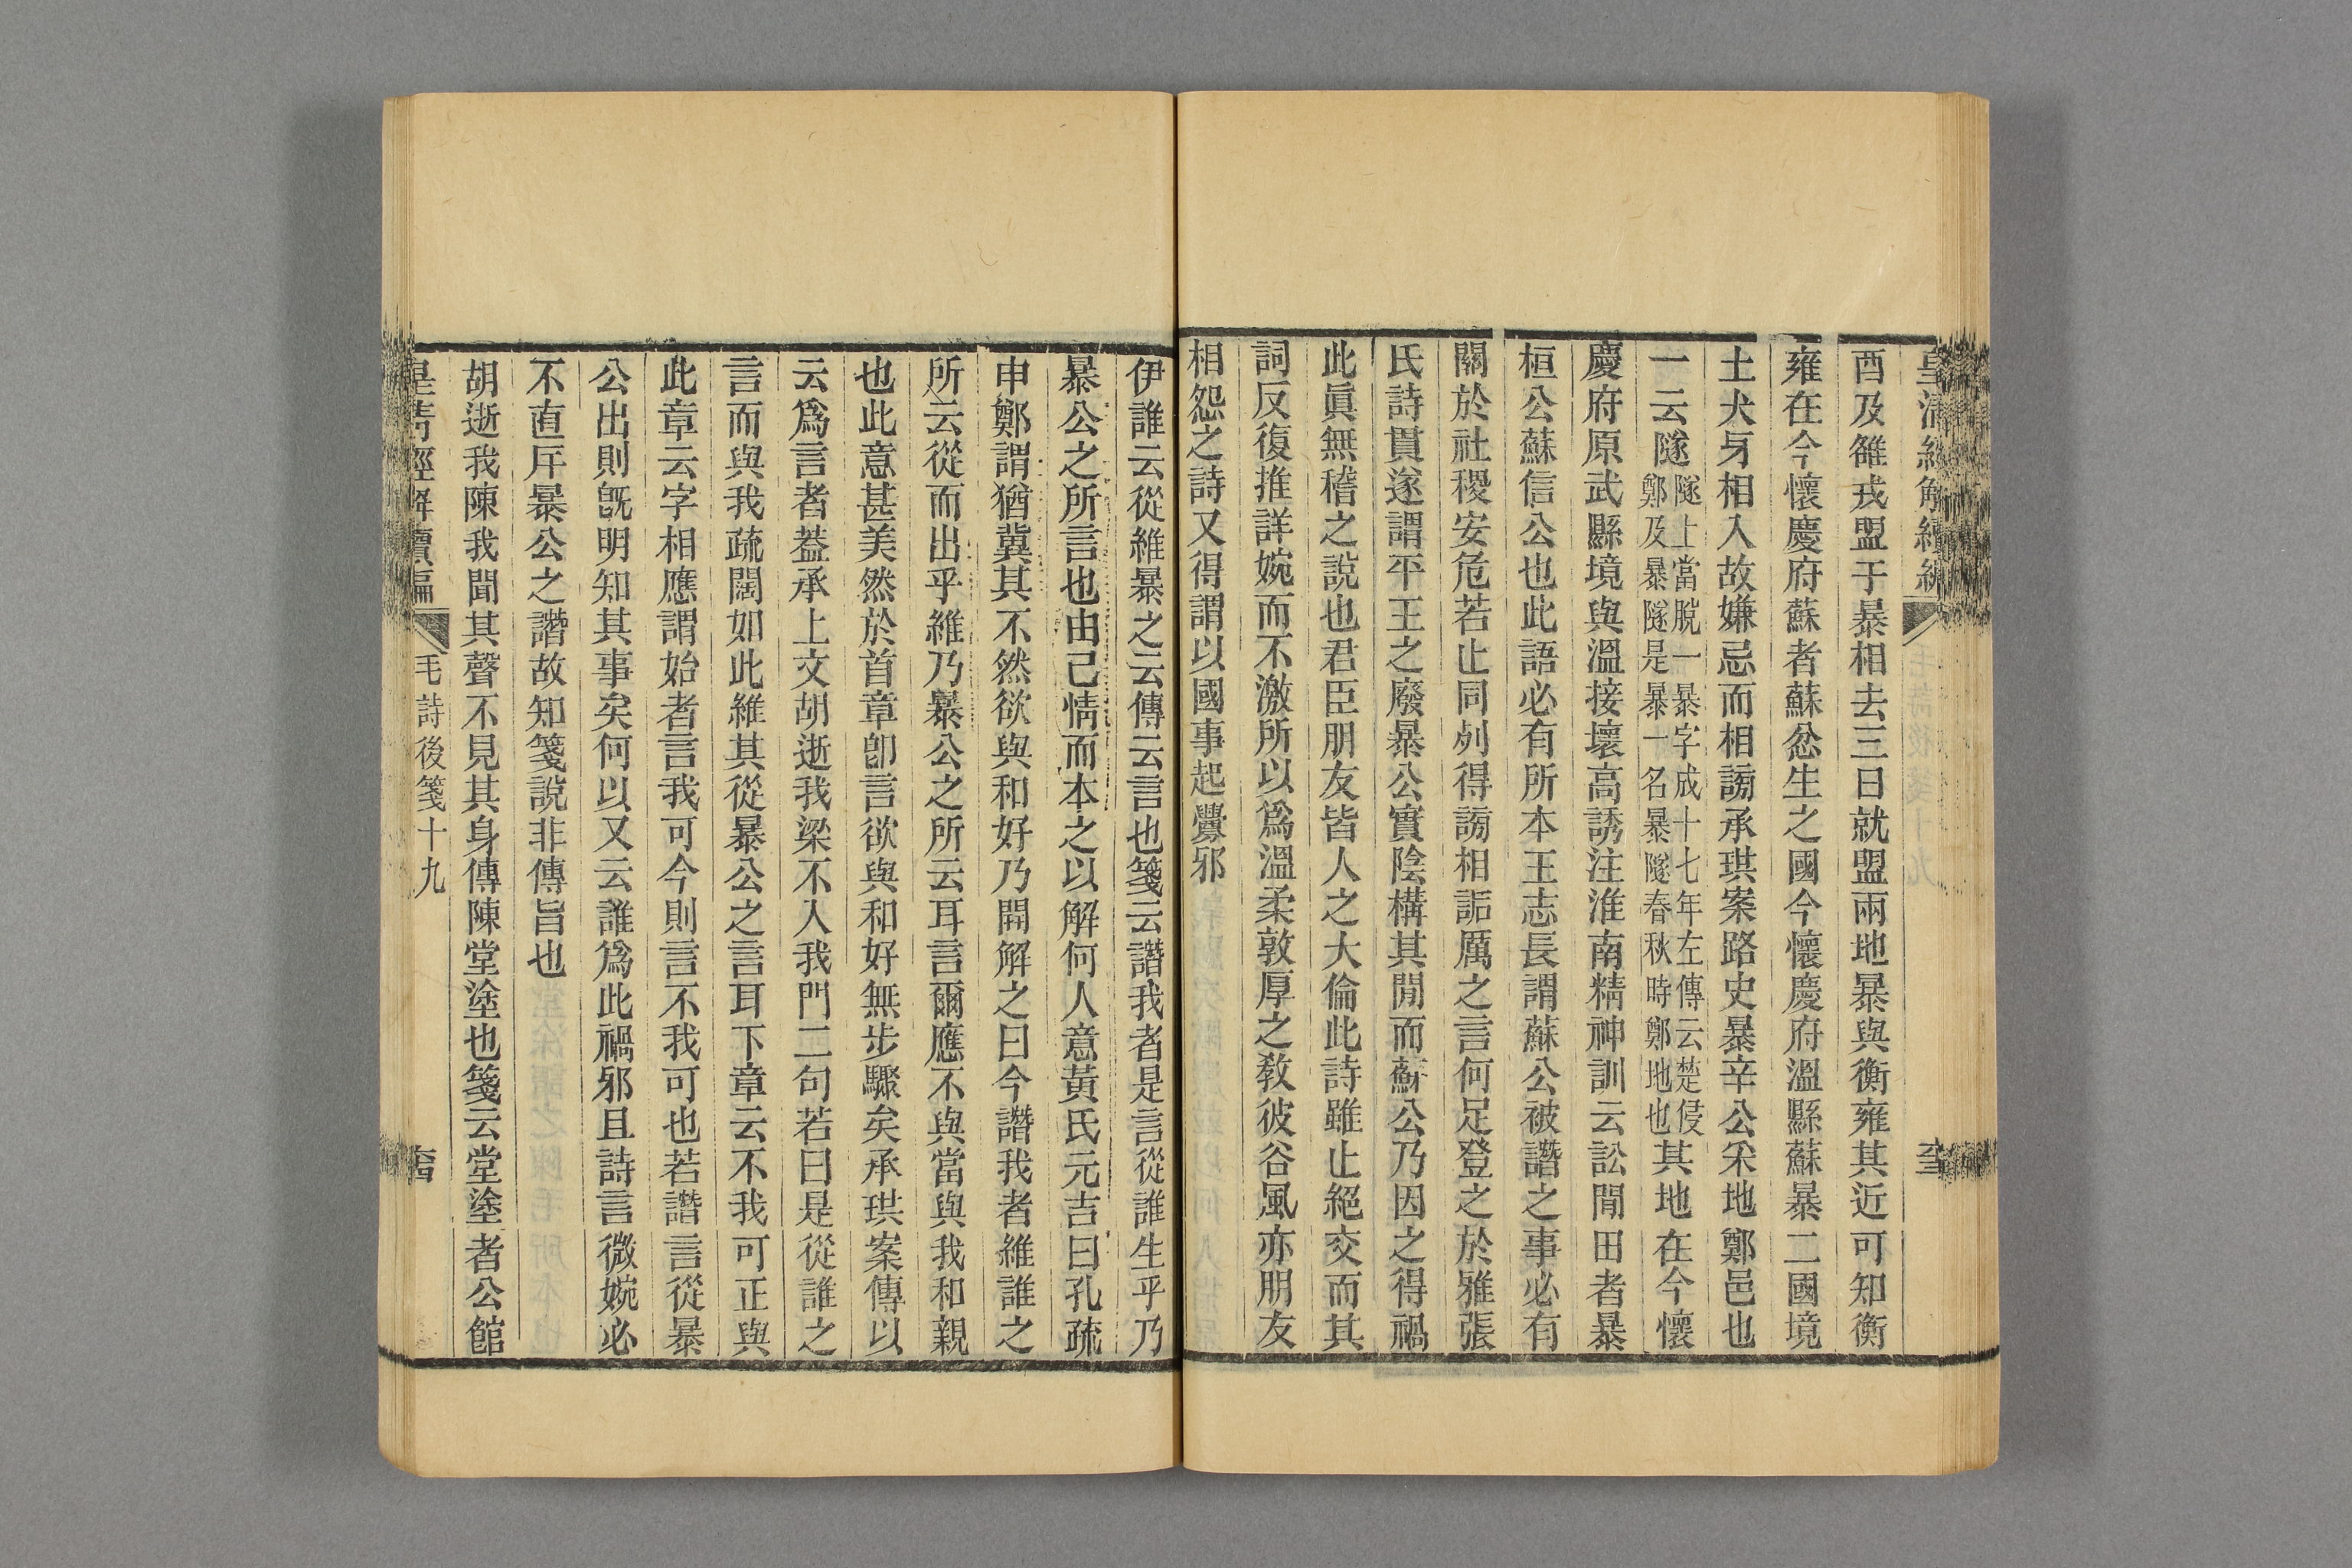 皇清經解續編
酉及雒戎盟于暴相去三日就盟兩地暴與衡雍其近可知衡
雍在今懷慶府蘇者蘇忿生之國今懷慶府溫縣蘇暴二國境
土犬牙相入故嫌忌而相謗承珙案路史暴辛公采地鄭邑也
一云隧
隧上當脫一暴字成十七年左傳云楚侵
鄭及暴隧是暴一名暴隧春秋時鄭地也
其地在今懷
慶府原武縣境與溫接壤高誘注淮南精神訓云訟閒田者暴
桓公蘇信公也此語必有所本王志長謂蘇公被譖之事必有
關於社稷安危若止同列得謗相詬厲之言何足登之於雅張
氏詩貫遂謂平王之廢暴公實陰構其閒而蘇公乃因之得禍
此眞無稽之說也君臣朋友皆人之大倫此詩雖止絕交而其
詞反復推詳婉而不激所以爲溫柔敦厚之敎彼谷風亦朋友
相怨之詩又得謂以國事起釁邪
伊誰云從維暴之云傳云言也箋云譖我者是言從誰生乎乃
暴公之所言也由己情而本之以解何人意黃氏元吉曰孔疏
申鄭謂猶冀其不然欲與和好乃開解之曰今譖我者維誰之
所云從而出乎維乃暴公之所云耳言爾應不與當與我和親
也此意甚美然於首章卽言欲與和好無步驟矣承珙案傳以
云爲言者葢承上文胡逝我梁不入我門二句若曰是從誰之
言而與我疏闊如此維其從暴公之言耳下章云不我可正與
此章云字相應謂始者言我可今則言不我可也若譖言從暴
公出則旣明知其事矣何以又云誰爲此禍邪且詩言微婉必
不直斥暴公之譖故知箋說非傳旨也
胡逝我陳我聞其聲不見其身傳陳堂塗也箋云堂塗者公館
皇淸經解續編
毛詩後箋十九